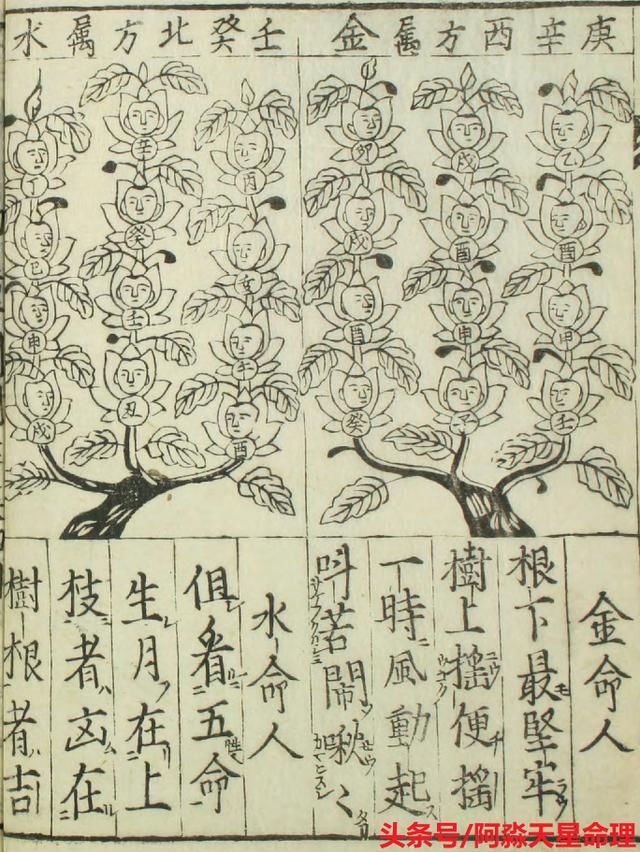 庚辛酉方属金
乙
酉
申
壬
戌
酉
申
子
卯
戌
酉
癸
金命人
根下最堅牢
樹上揺便揺
一時風動起
叫苦鬧啾〻
壬癸北方属水
午
酉
辛
癸
壬
丑
丁
巳
申
戌
水命人
但看五命
生月在上
枝者凶在
樹根者吉
头条号/阿淼天星命理